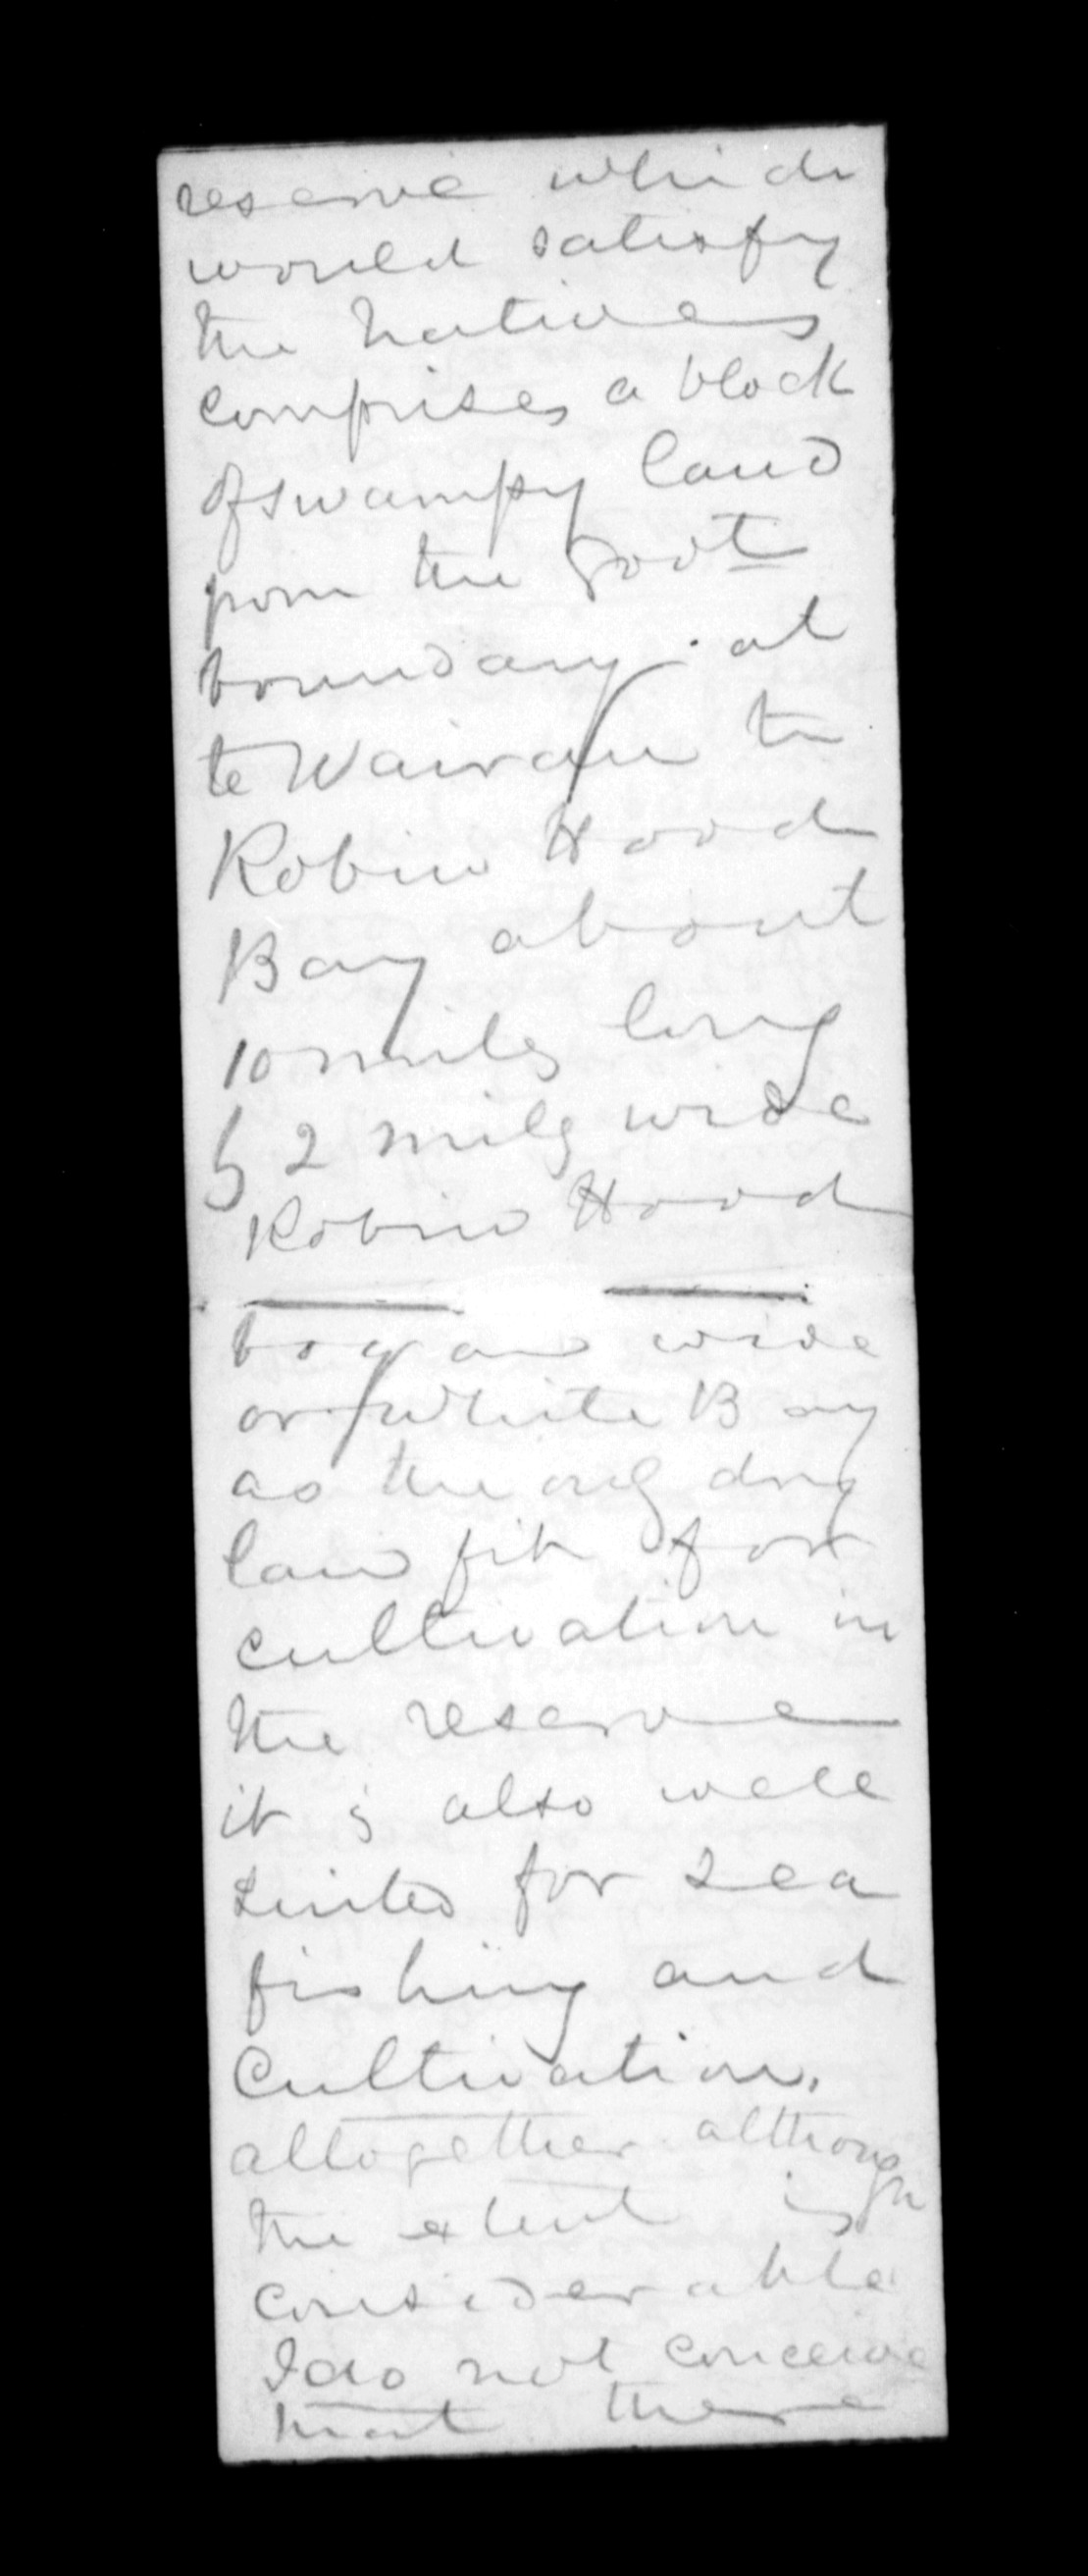 reserve which
would satisfy
the natives
comprises a block
of swampy land
from the Govt
boundary at
te Wairau to
Robin Hood
Bay about
10 miles long
by 2 miles wide
Robin Hood
bay and wide
or White Bay
as the only dry
land fit for
cultivation in
the reserve
it is also well
suited for sea
fishing and
Cultivation.
altogether although
the extent is
considerable
I do not conceive
that there